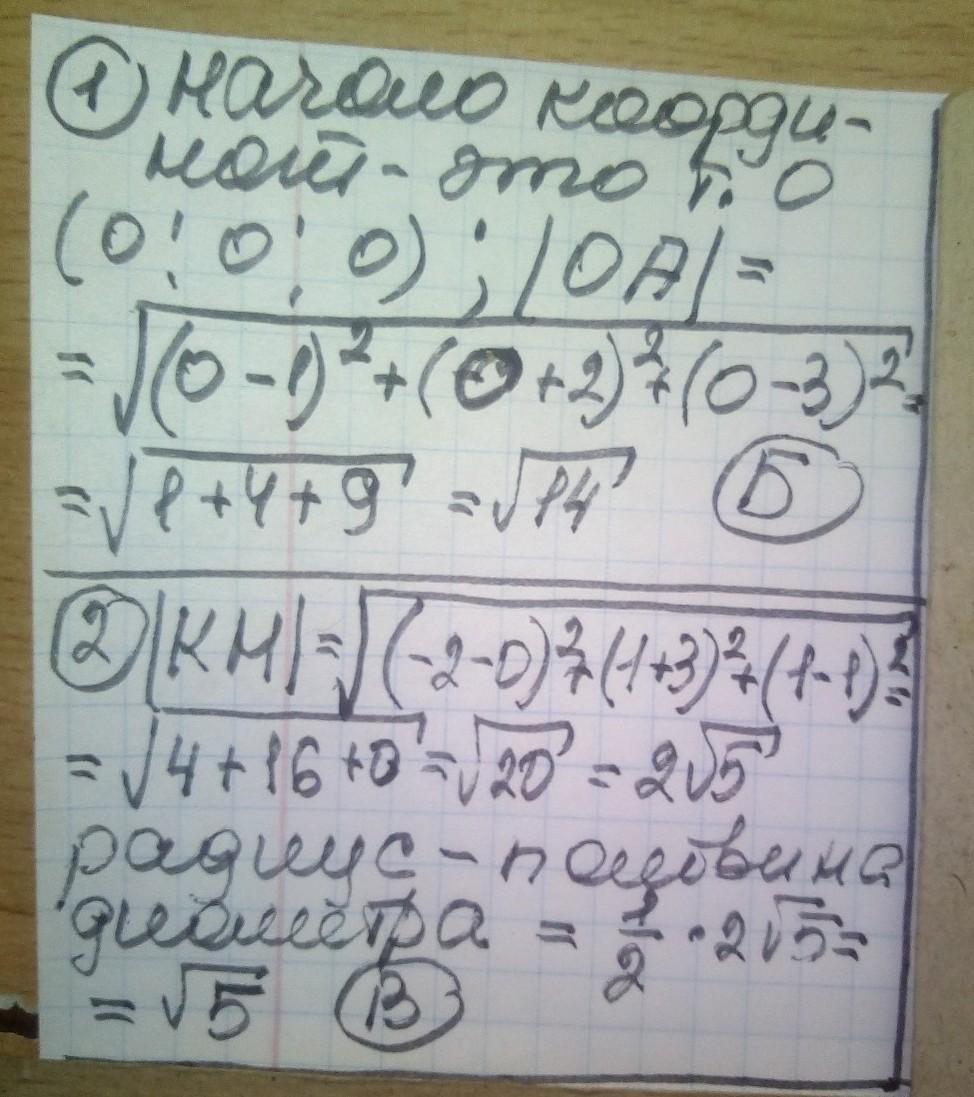 ① Начало коорди-
нат - это т. О
(0; 0; 0); |OA| =
= √((0-1)² + (0+2)² + (0-3)²) =
= √(1+4+9) = √14 Б
② |KM| = √((-2-0)² + (1+3)² + (1-1)²) =
= √(4+16+0) = √20 = 2√5
радиус - половина
диаметра = 1/2 · 2√5 =
= √5 В